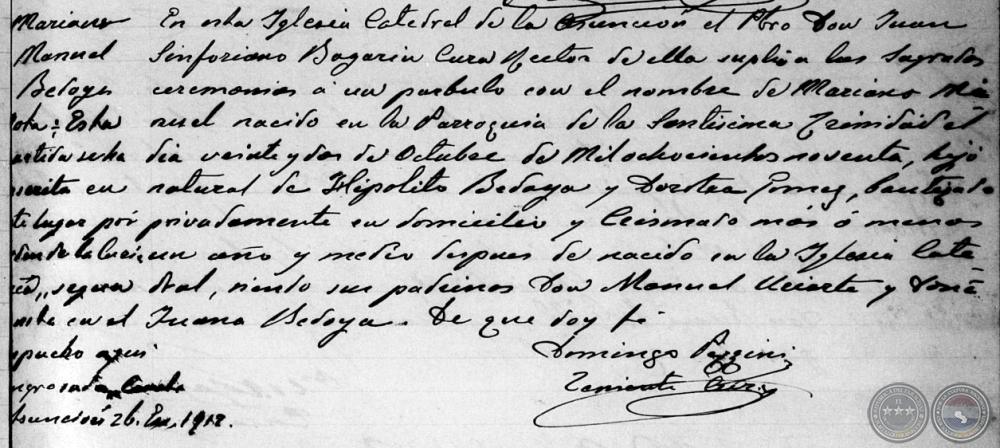 Mariano
Manuel
Bedoya
Nota: Esta
partida se ha
escrita en
te lugar por
orden de la Curia
segun
en el
aqui
Asunción 26. En. 1912.
En esta Iglesia Catedral de la Asuncion el Pbro Don Juan
Sinforiano Bogarin Cura Rector de ella suplió a las Sagradas
ceremonias á un parbulo con el nombre de Mariano Ma
nuel nacido en la Parroquia de la Santisima Trinidad el
dia veinte y dos de Octubre de Mil ochocientos noventa, hijo
natural de Hipolito Bedoya y Dorotea Gomez, bautizado
privadamente en domicilio y Crismado más ó menos
un año y medio despues de nacido en la Iglesia Cate
dral, siendo sus padrinos Don Manuel Uriarte y Doña
Juana Bedoya. De que doy fé
Domingo Pezzini
Teniente Cura